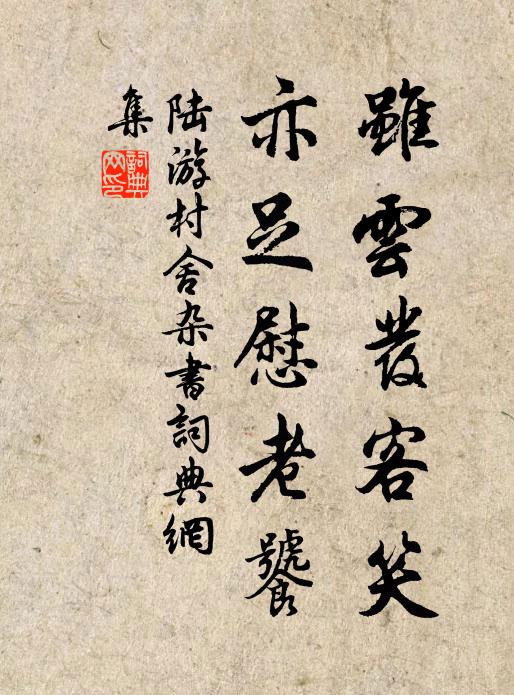 雖雲發客笑
亦足慰老饕
陆游村舍杂書詞典網
集
詞典
网印